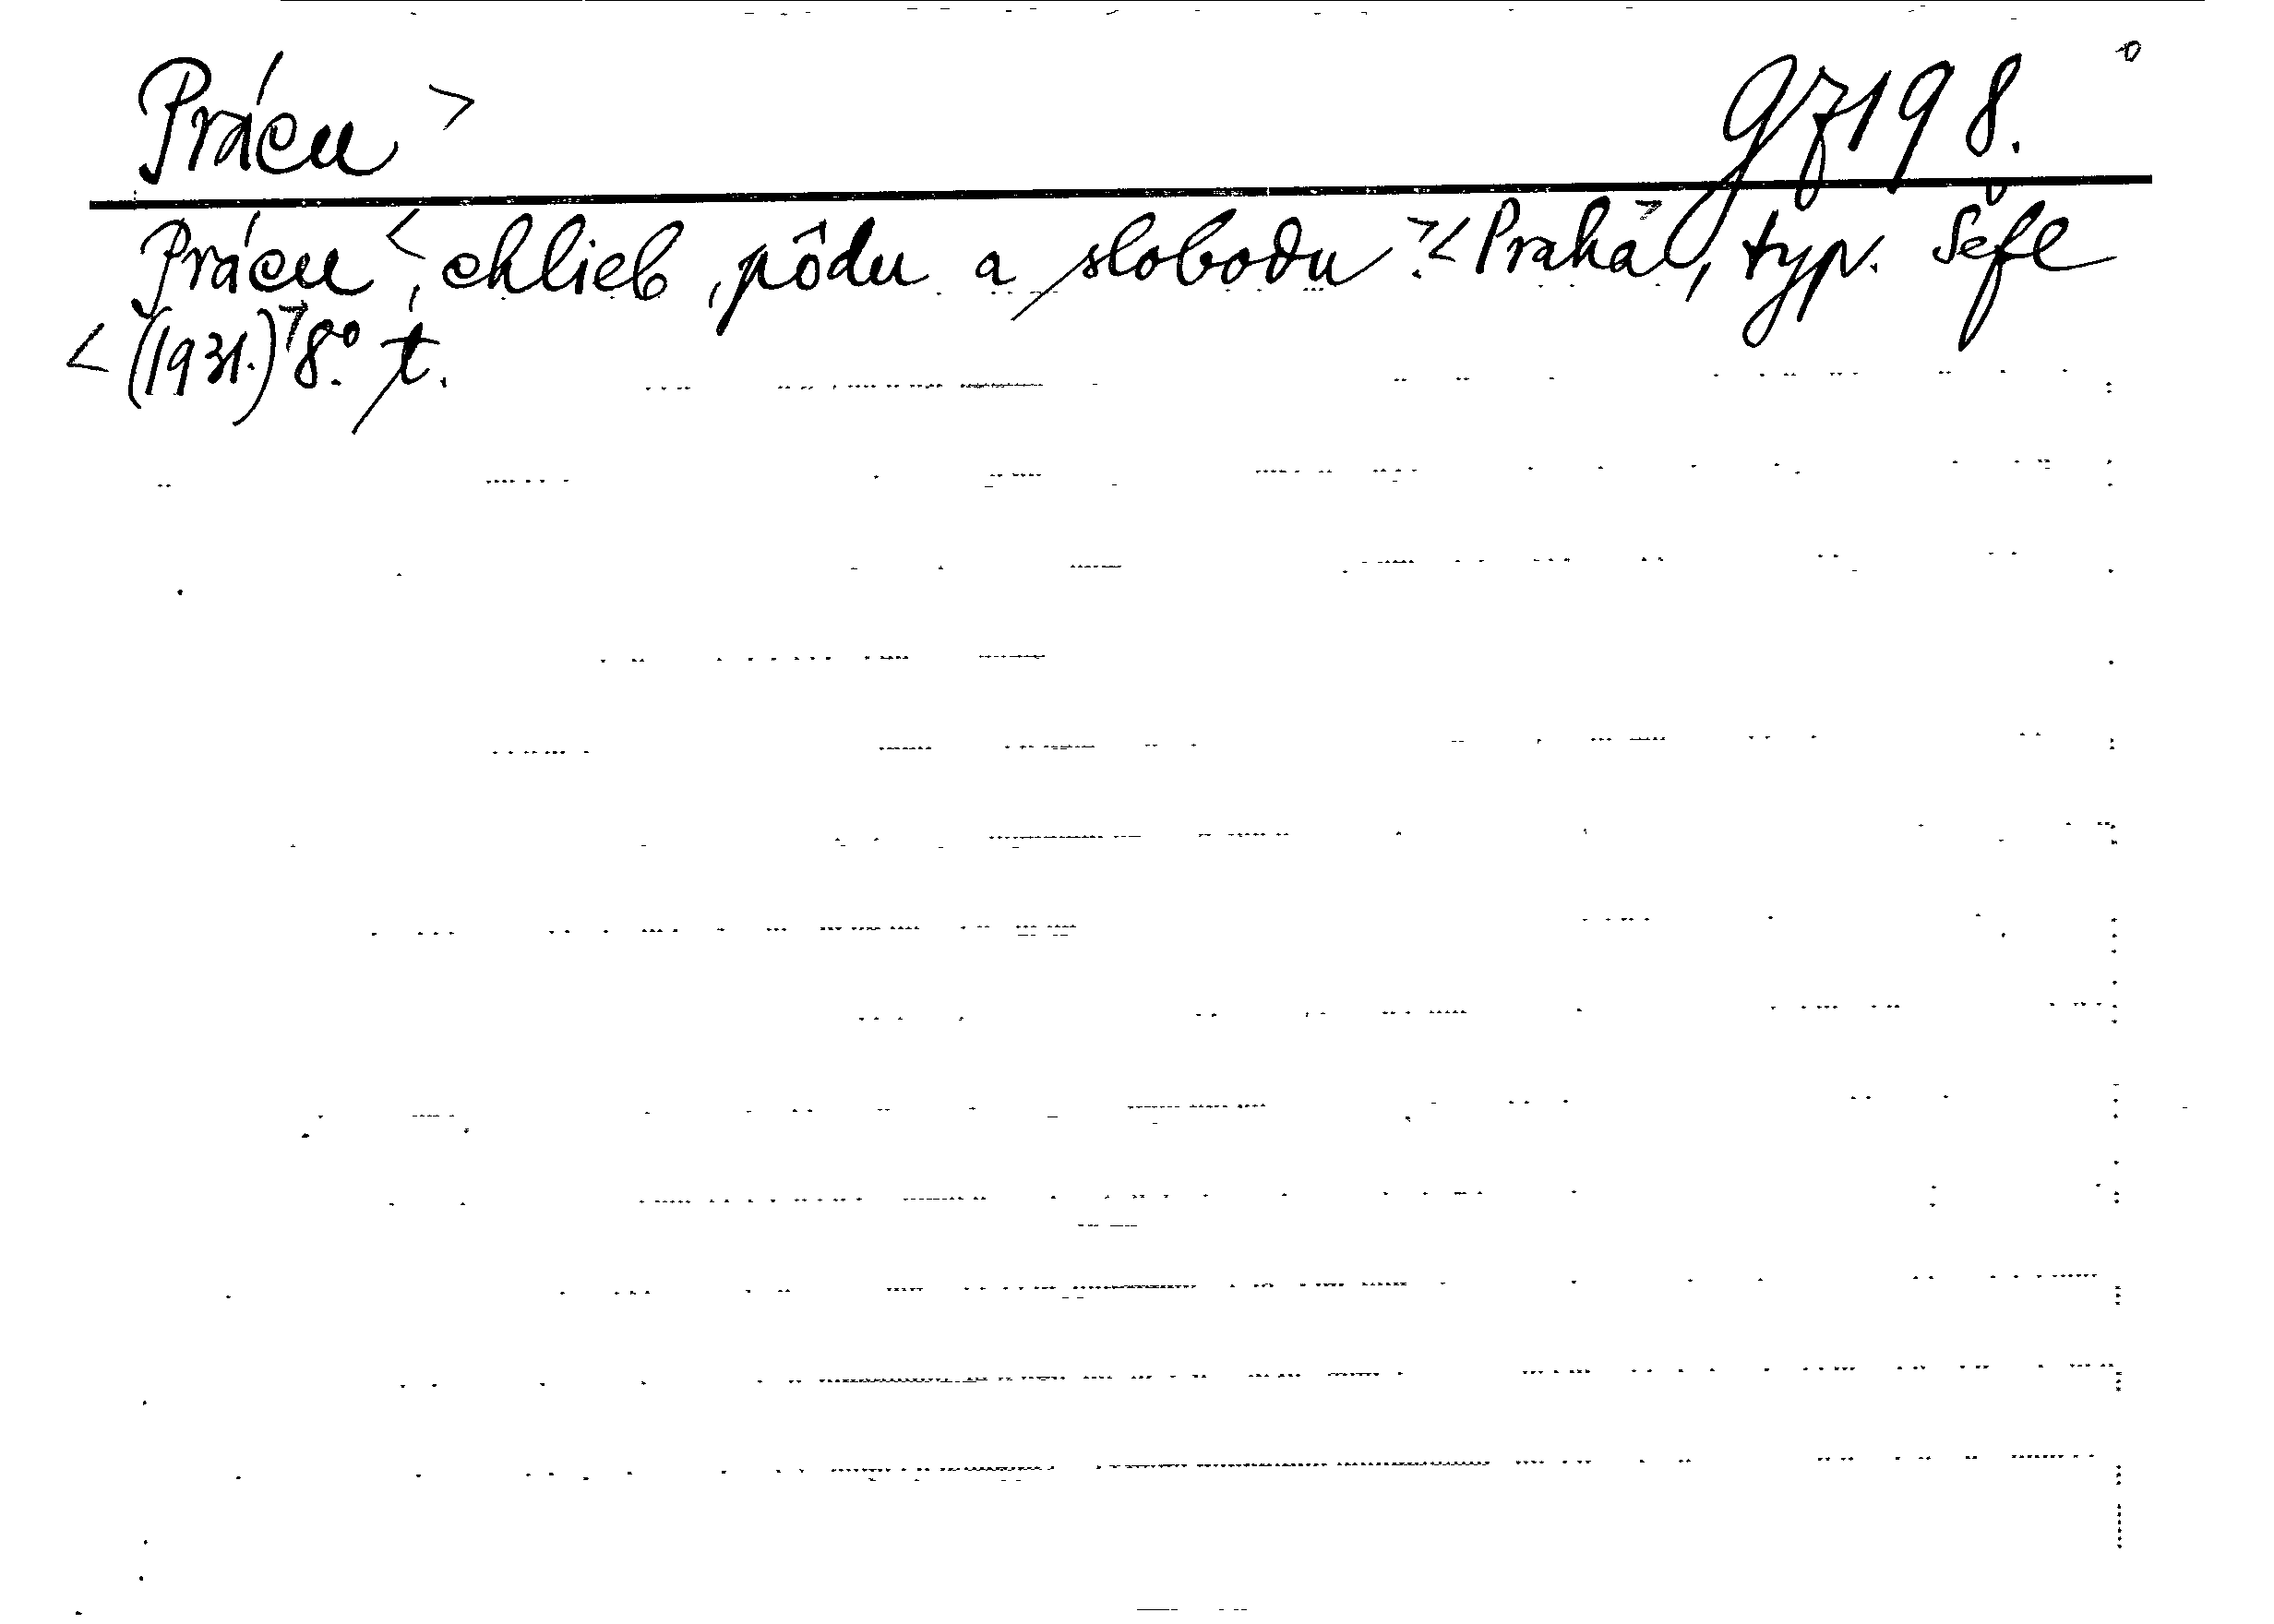 Prácu > gz198.
Prácu <, chlieb, pôdu a slobodu!> <Praha>, typ. Šefl
<(1931.)> 8º. t.